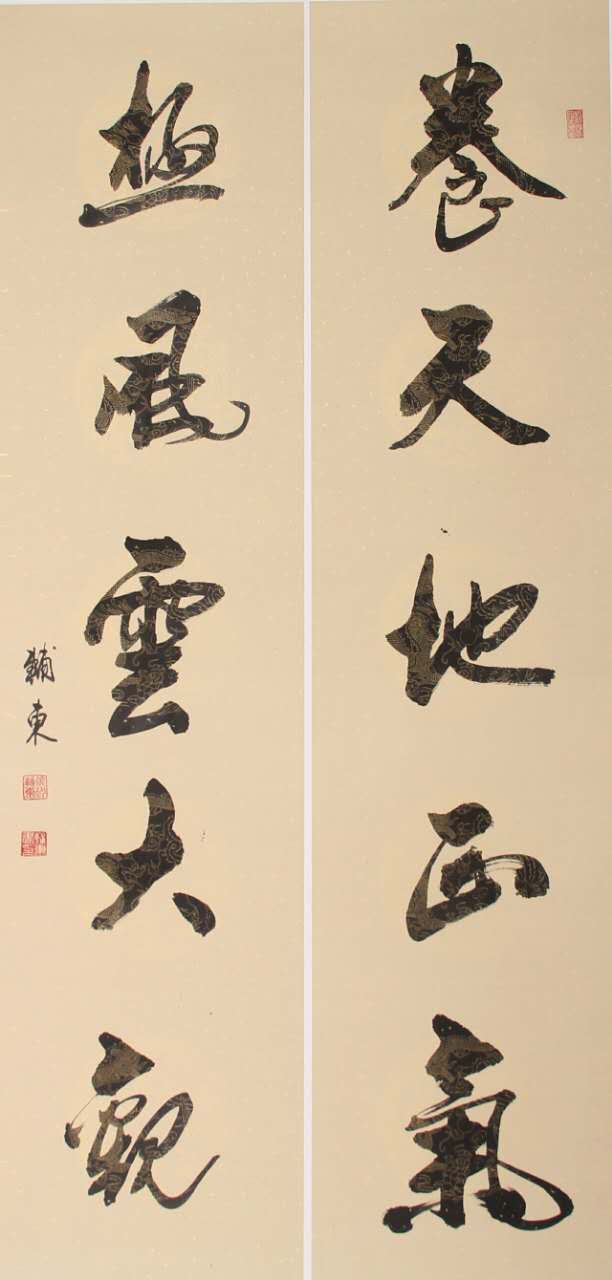 養天地正氣
極風雲大觀
輔東